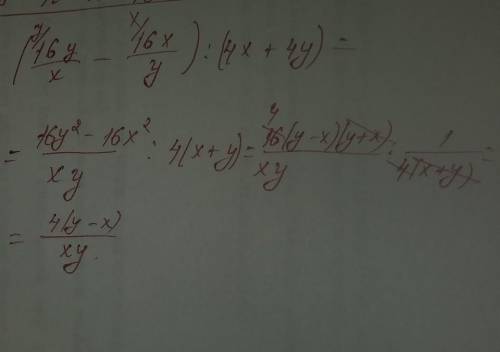 (ʸ/16y/x − ˣ/16x/y) : (4x + 4y) =
= (16y² − 16x²)/(xy) : 4(x + y) = ⁴16(y − x)(y + x)/(xy) : 1/(4(x + y)) =
= 4(y − x)/(xy).